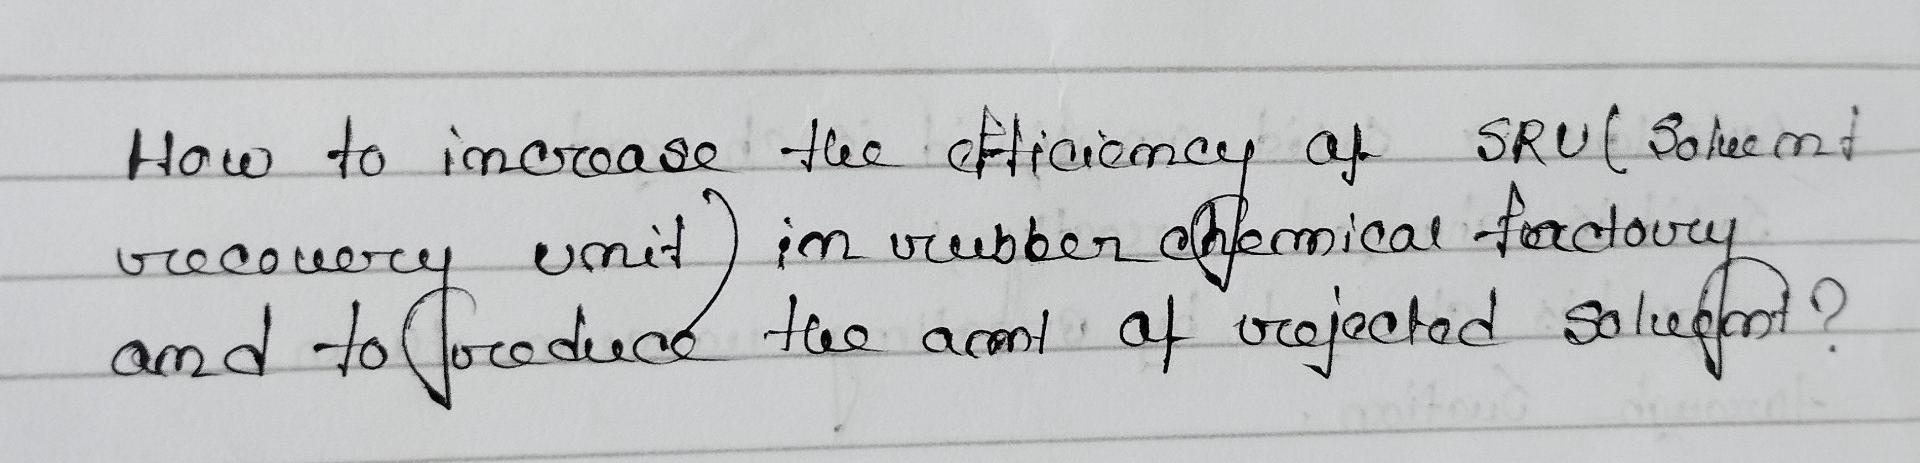 How to increase the efficiency of SRU (Solvent
recovery unit) in rubber chemical factory
and to reduce the amt of rejected solvent?